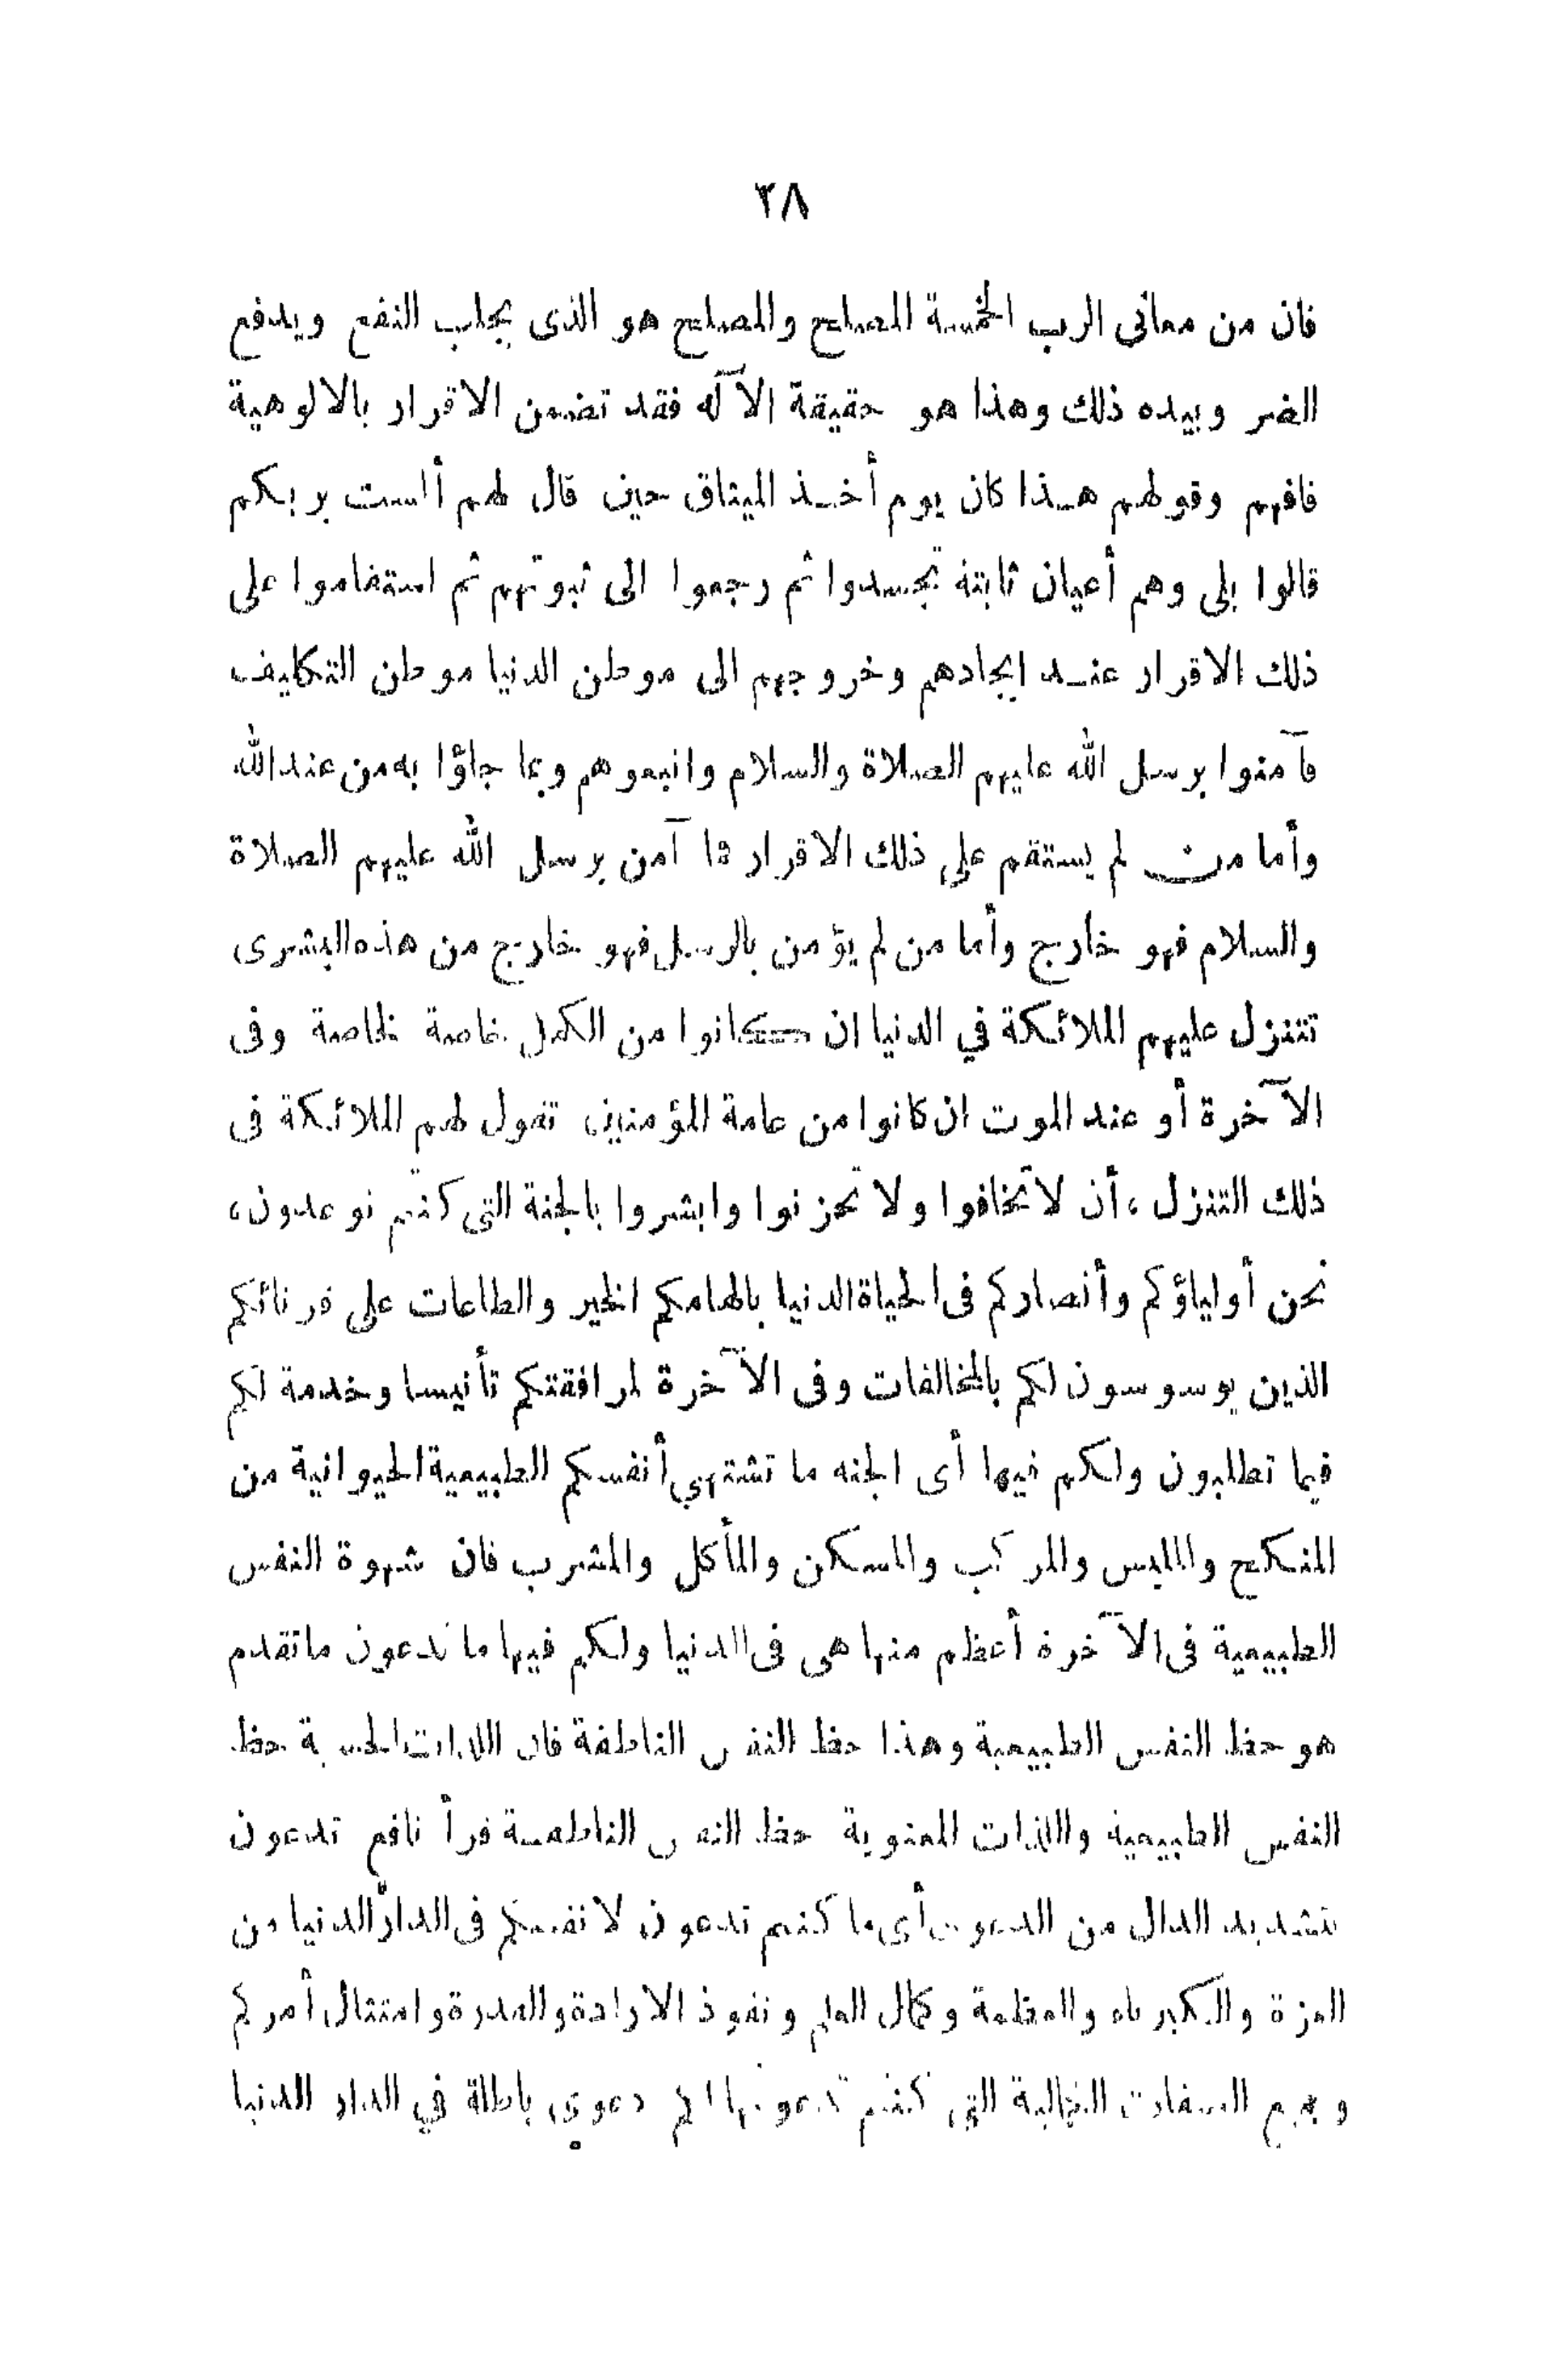 ٣٨
فان من معانى الرب الخمسة المصلح والمصلح هو الذى يجلب النفع ويدفع
الضر وبيده ذلك وهذا هو حقيقة الآله فقد تضمن الاقرار بالالوهية
فافهم وقولهم هذا كان يوم أخذ الميثاق حين قال لهم ألست بربكم
قالوا بلى وهم أعيان ثابتة تجسدوا ثم رجعوا الى ثبوتهم ثم استقاموا على
ذلك الاقرار عند ايجادهم وخروجهم الى موطن الدنيا موطن التكليف
فآمنوا برسل الله عليهم الصلاة والسلام واتبعوهم وبما جاؤا به من عند الله
وأما من لم يستقم على ذلك الاقرار فما آمن برسل الله عليهم الصلاة
والسلام فهو خارج وأما من لم يؤمن بالرسل فهو خارج من هذه البشرى
تتنزل عليهم الملائكة في الدنيا ان كانوا من الكمل خاصة لخاصة وفى
الآخرة أو عند الموت ان كانوا من عامة المؤمنين تقول لهم الملائكة فى
ذلك التنزل ، أن لا تخافوا ولا تحزنوا وابشروا بالجنة التى كنتم توعدون ،
نحن أولياؤكم وأنصاركم فى الحياة الدنيا بالهامكم الخير والطاعات على قرنائكم
الذين يوسوسون لكم بالمخالفات وفى الآخرة لمرافقتكم تأنيسا وخدمة لكم
فيما تطلبون ولكم فيها أى الجنه ما تشتهي أنفسكم الطبيعية الحيوانية من
المنكح والملبس والمركب والمسكن والمأكل والمشرب فان شهوة النفس
الطبيعية فى الآخرة أعظم منها هى فى الدنيا ولكم فيها ما تدعون ما تقدم
هو حظ النفس الطبيعية وهذا حظ النفس الناطقة فان اللذات الحسية حظ
النفس الطبيعية واللذات المعنوية حظ النفس الناطقة قرأ نافع تدعون
بتشديد الدال من الدعوى أى ما كنتم تدعون لانفسكم فى الدار الدنيا من
العزة والكبرياء والعظمة وكمال العلم ونفوذ الارادة والقدرة وامتثال أمركم
وجميع الصفات التى كنتم تدعونها لكم دعوى باطلة في الدار الدنيا